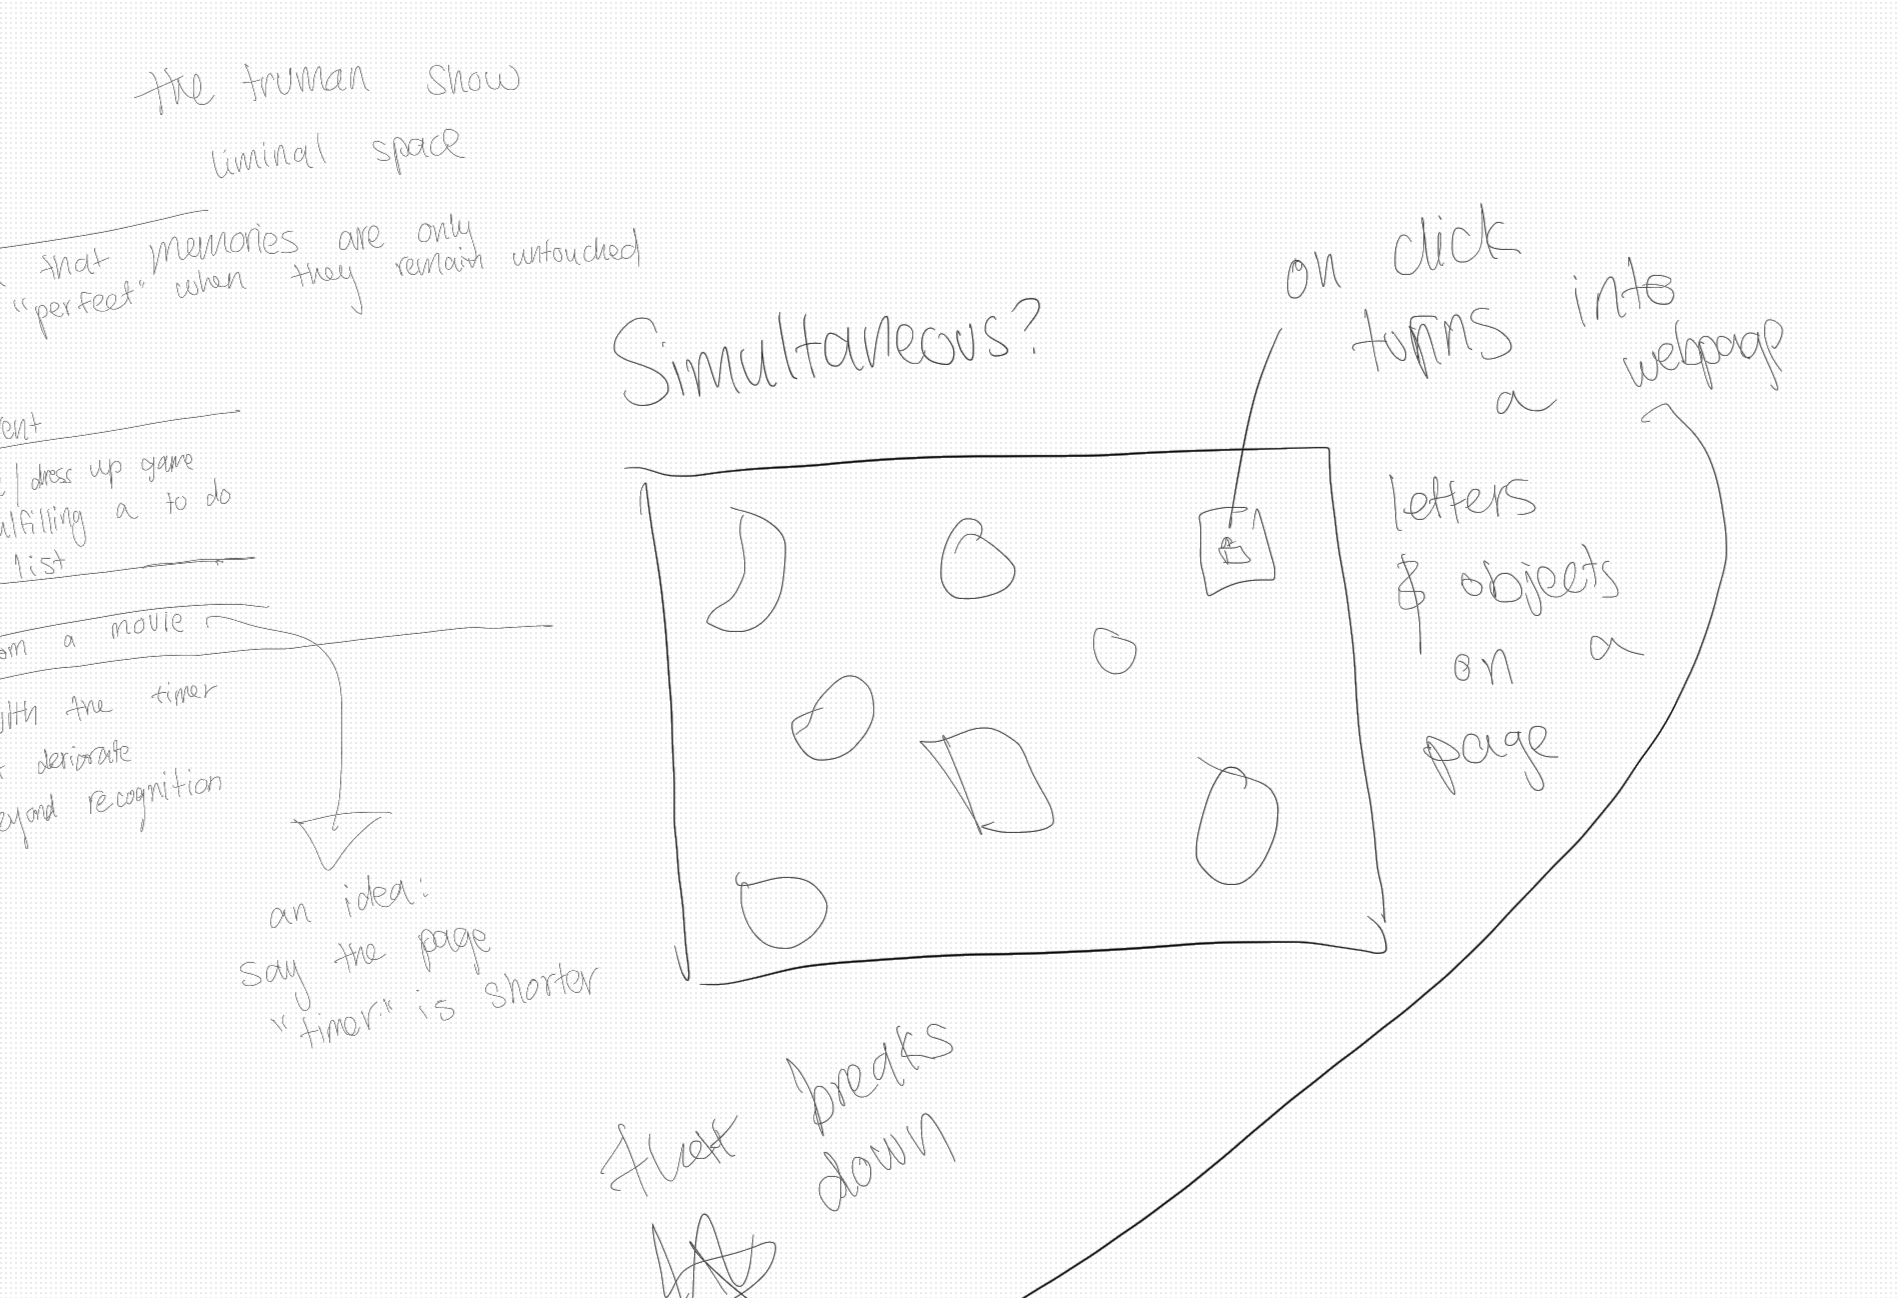 the truman show
liminal space
that memories are only
"perfect" when they remain untouched
ent
dress up game
ulfilling a to do
list
om a movie
with the timer
deriorate
eyond recognition
an idea:
say the page
"timer" is shorter
Simultaneous?
on click
turns into
a webpage
letters
& objects
on a
page
that breaks
down